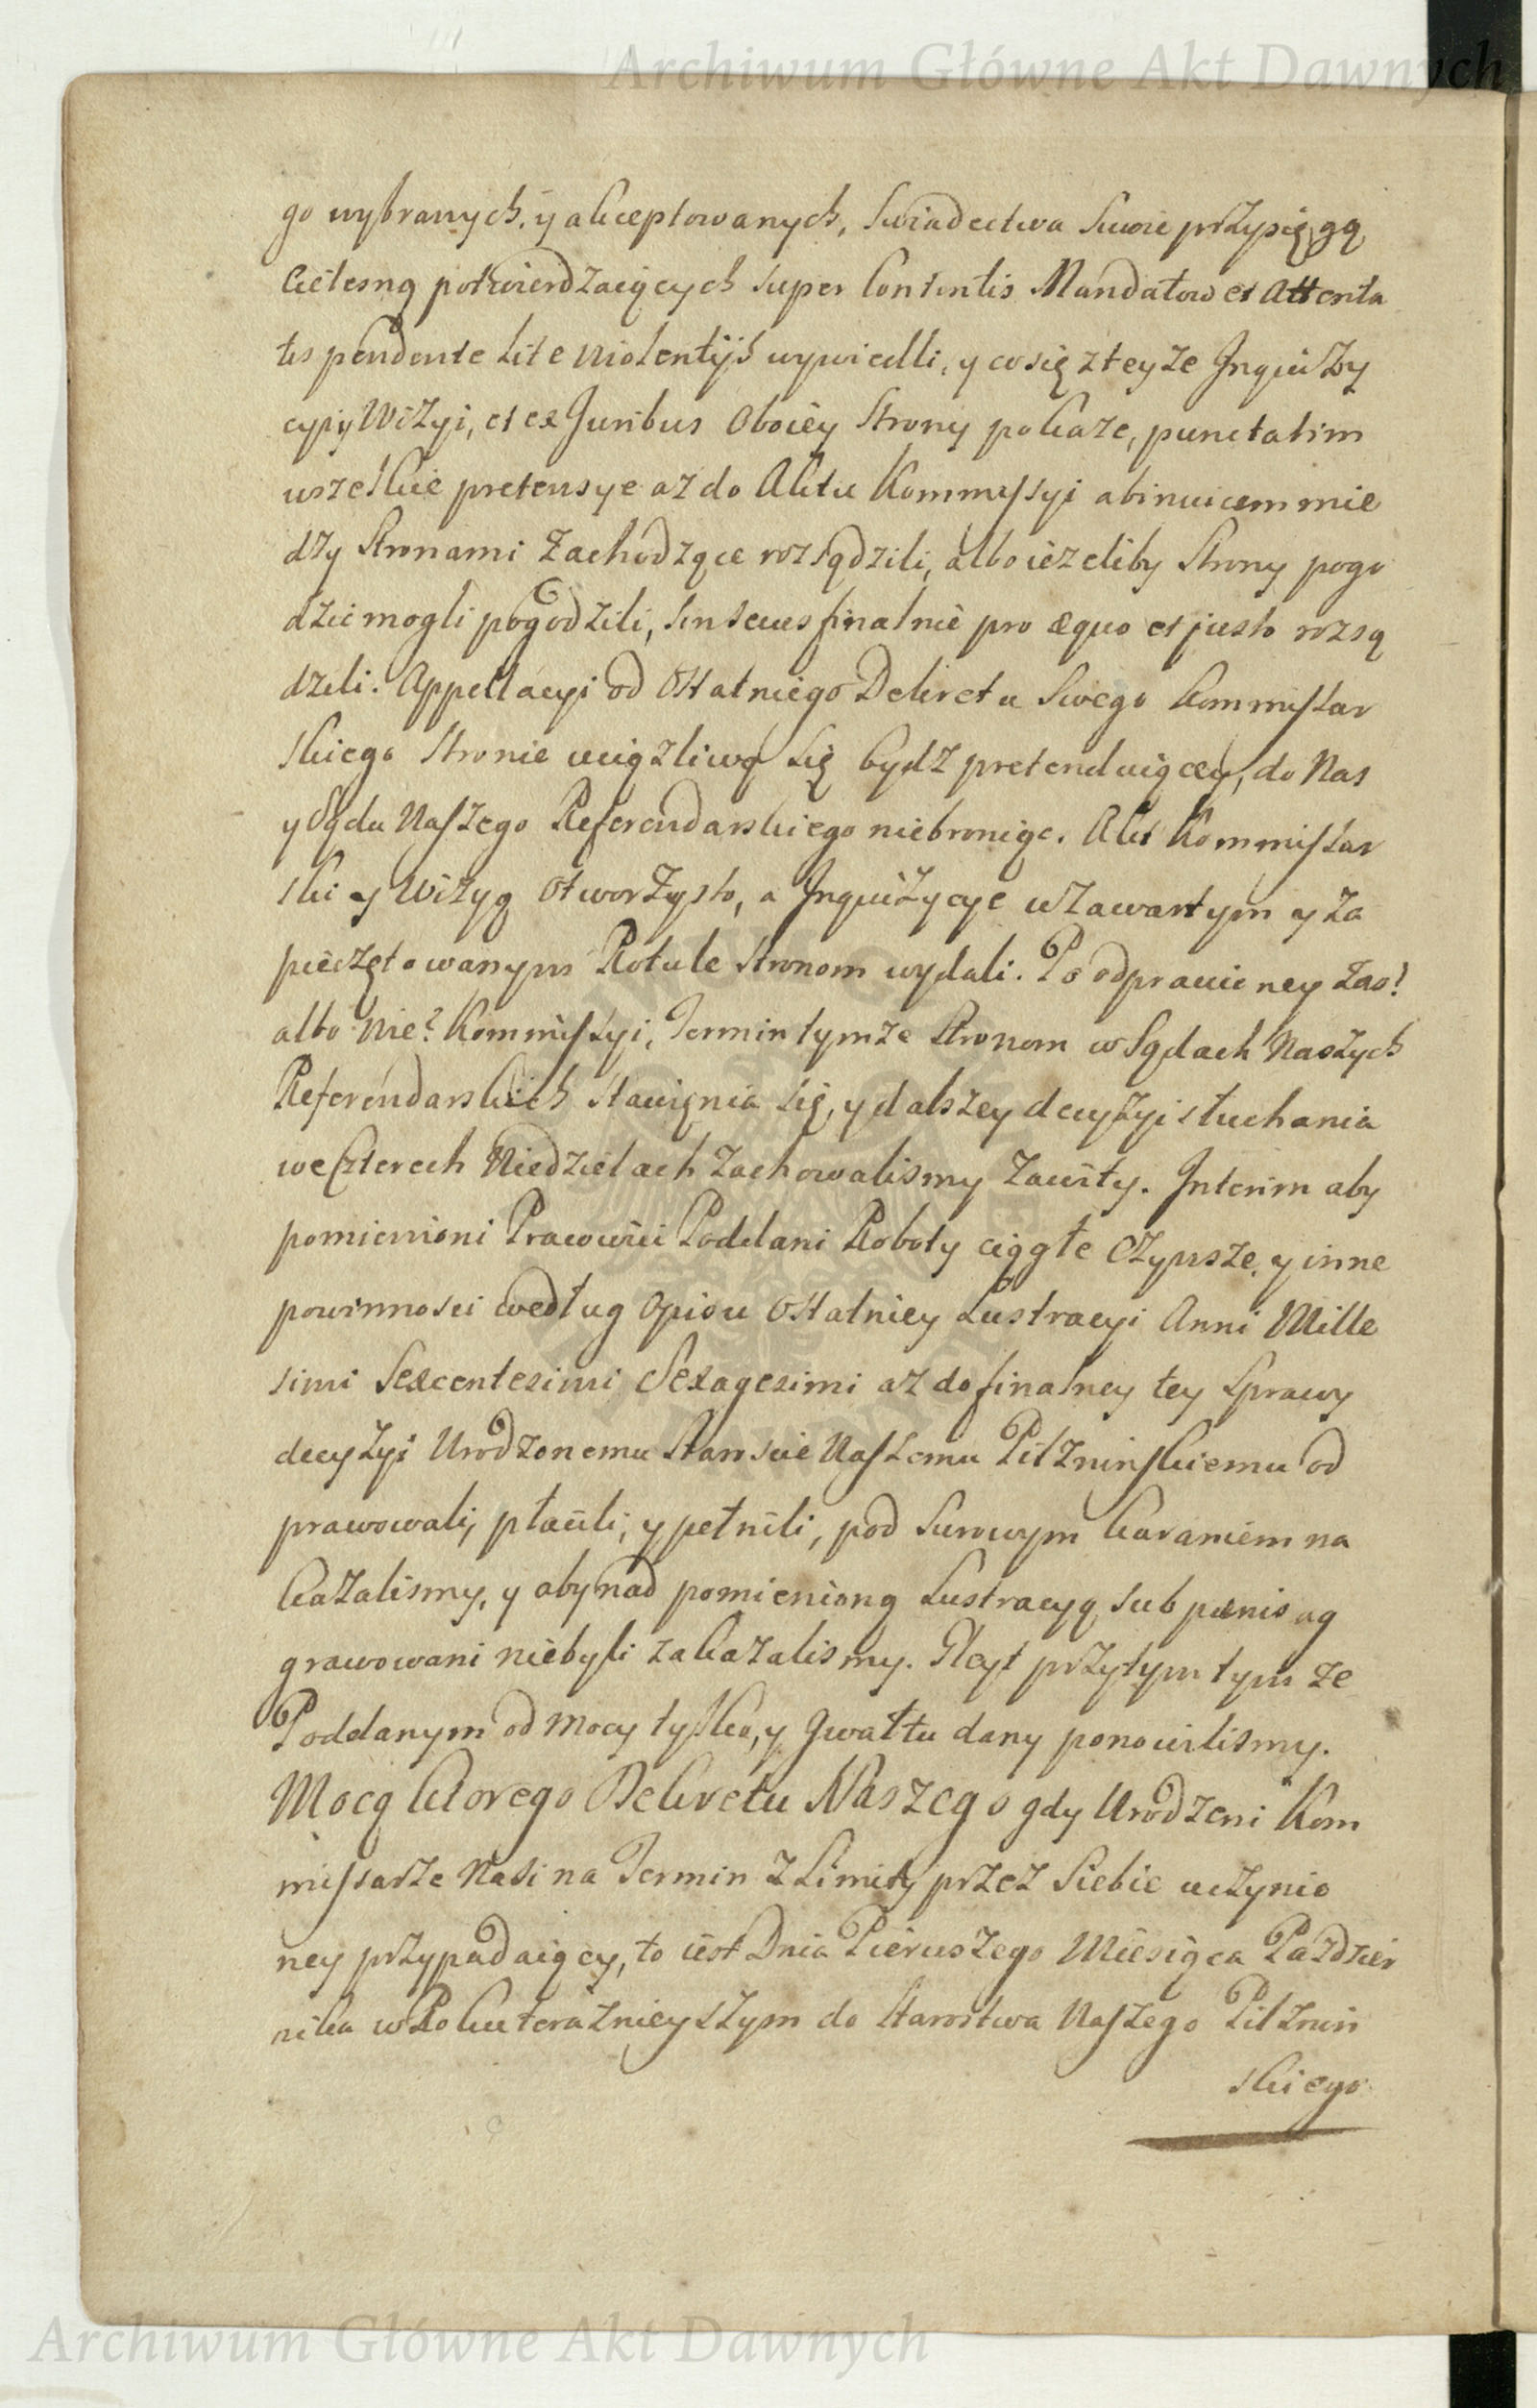 Archiwum Główne Akt Dawnych
go wybranych, y akceptowanych, Swiadectwa Swoie przysięgą
Cielesną potwierdzaiących super Contentis Mandatow et Attenta
tis pendente Lite violentijs wywiedli, y co się z teyże Inquizy
cyi y Wizyi, et ex Juribus Oboiey Strony pokaże, punctatim
wszelkie pretensye aż do Aktu Kommissyi abinvicem mie
dzy Stronami Zachodzące rozsądzili, albo ieżeliby Strony pogo
dzić mogli pogodzili, sin secus finalnie pro æquo et justo rozsą
dzili. Appellacyi od Ostatniego Dekretu Swego Kommissar
skiego Stronie uciążliwą się bydz pretenduiącey, do Nas
y Sądu Naszego Referendarskiego niebroniąc. Akt Kommissar
ski y Wizyą Otworzysto, a Inquizycye w Zawartym y Za
pieczętowanym Rotule Stronom wydali. Po odprawioney zas?
albo Nie? Kommissyi, Termin tymże Stronom w Sądach Naszych
Referendarskich Stawienia się, y dalszey decyzyi słuchania
we Czterech Niedzielach zachowalismy Zawity. Interim aby
pomienioni Pracowici Poddani Roboty ciągłe Czynsze, y inne
powinnosci według Opisu Ostatniey Lustracyi Anni Mille
simi Sexcentesimi Sexagesimi aż do finalney tey Sprawy
decyzyi Urodzonemu Staroscie Naszemu Pilzninskiemu od
prawowali, płacili, y pełnili, pod Surowym karaniem na
kazalismy, y aby nad pomienioną Lustracyą sub pænis ag
grawowani niebyli zakazalismy. Gleyt przytym tym że
Poddanym od mocy tylko, y Gwałtu dany ponowilismy.
Mocą ktorego Dekretu Naszego gdy Urodzeni Kom
missarze Nasi na Termin z Limity przez Siebie uczynio
ney przypadaiący, to iest Dnia Pierwszego Miesiąca Pazdzier
nika w Roku teraznieyszym do Starostwa Naszego Pilznin
skiego
Archiwum Główne Akt Dawnych